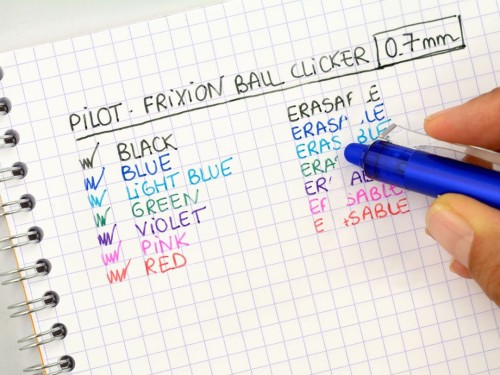 PILOT - FRIXION BALL CLICKER 0.7mm
BLACK
BLUE
LIGHT BLUE
GREEN
VIOLET
PINK
RED
ERASA E
ERAS LE
ERAS BLE
ERA
ER
E SABLE
E SABLE